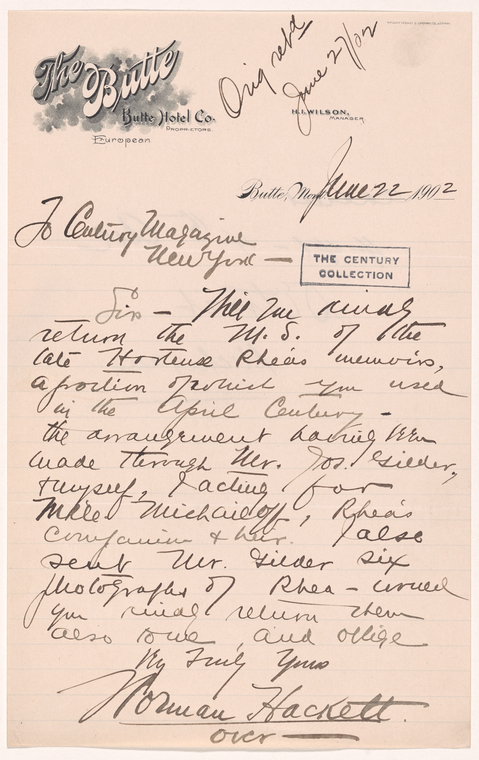 The Butte
Butte Hotel Co.
PROPRIETORS.
European
Orig retd
June 27/02
H.L. WILSON,
MANAGER.
Butte, Mon. June 22 1902
To Century Magazine
New York —
THE CENTURY
COLLECTION
Sir — Will you kindly
return the M.S. of the
late Hortense Rhea's memoirs,
a portion of which you used
in the April Century -
the arrangement having been
made through Mr. Jos. Gilder,
& myself, I acting for
Mlle. Michailoff, Rhea's
companion & heir. I also
sent Mr. Gilder six
photographs of Rhea - would
you kindly return them
also to me and oblige
Vy Truly Yours
Norman Hackett.
over —